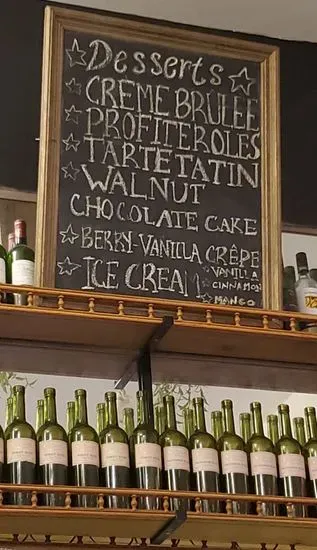 Desserts
CREME BRULEE
PROFITEROLES
TARTE TATIN
WALNUT
CHOCOLATE CAKE
BERRY-VANILLA CRÊPE
ICE CREAM
VANILLA
CINNAMON
MANGO